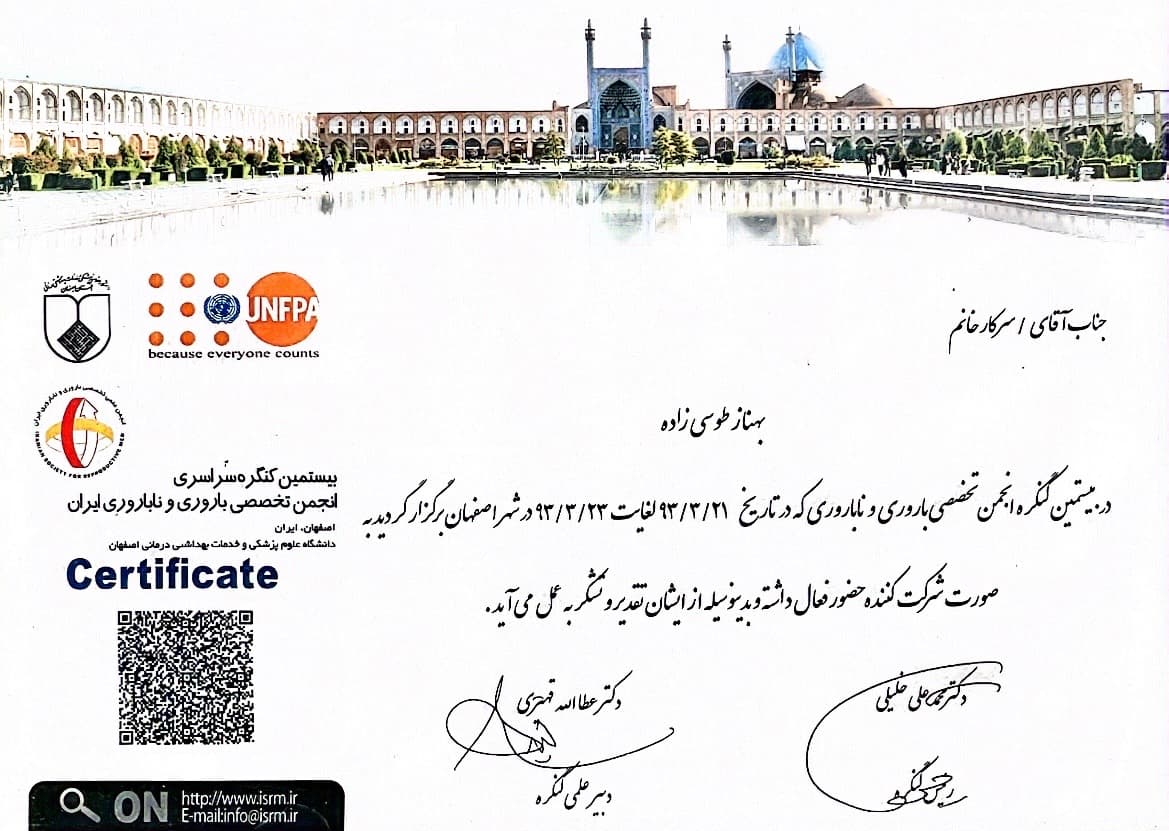 UNFPA
because everyone counts
جناب آقای / سرکار خانم
بهناز طوسی زاده
در بیستمین کنگره انجمن تخصصی باروری و ناباروری که در تاریخ ۹۳/۳/۲۱ لغایت ۹۳/۳/۲۳ در شهر اصفهان برگزار گردید به
صورت شرکت کننده حضور فعال داشته و بدینوسیله از ایشان تقدیر و تشکر به عمل می آید.
انجمن علمی تخصصی باروری و ناباروری ایران
IRANIAN SOCIETY FOR REPRODUCTIVE MED
بیستمین کنگره سراسری
انجمن تخصصی باروری و ناباروری ایران
اصفهان، ایران
دانشگاه علوم پزشکی و خدمات بهداشتی درمانی اصفهان
Certificate
دکتر محمد علی خلیلی
رئیس کنگره
دکتر عطا الله قهیری
دبیر علمی کنگره
ON
http://www.isrm.ir
E-mail:info@isrm.ir